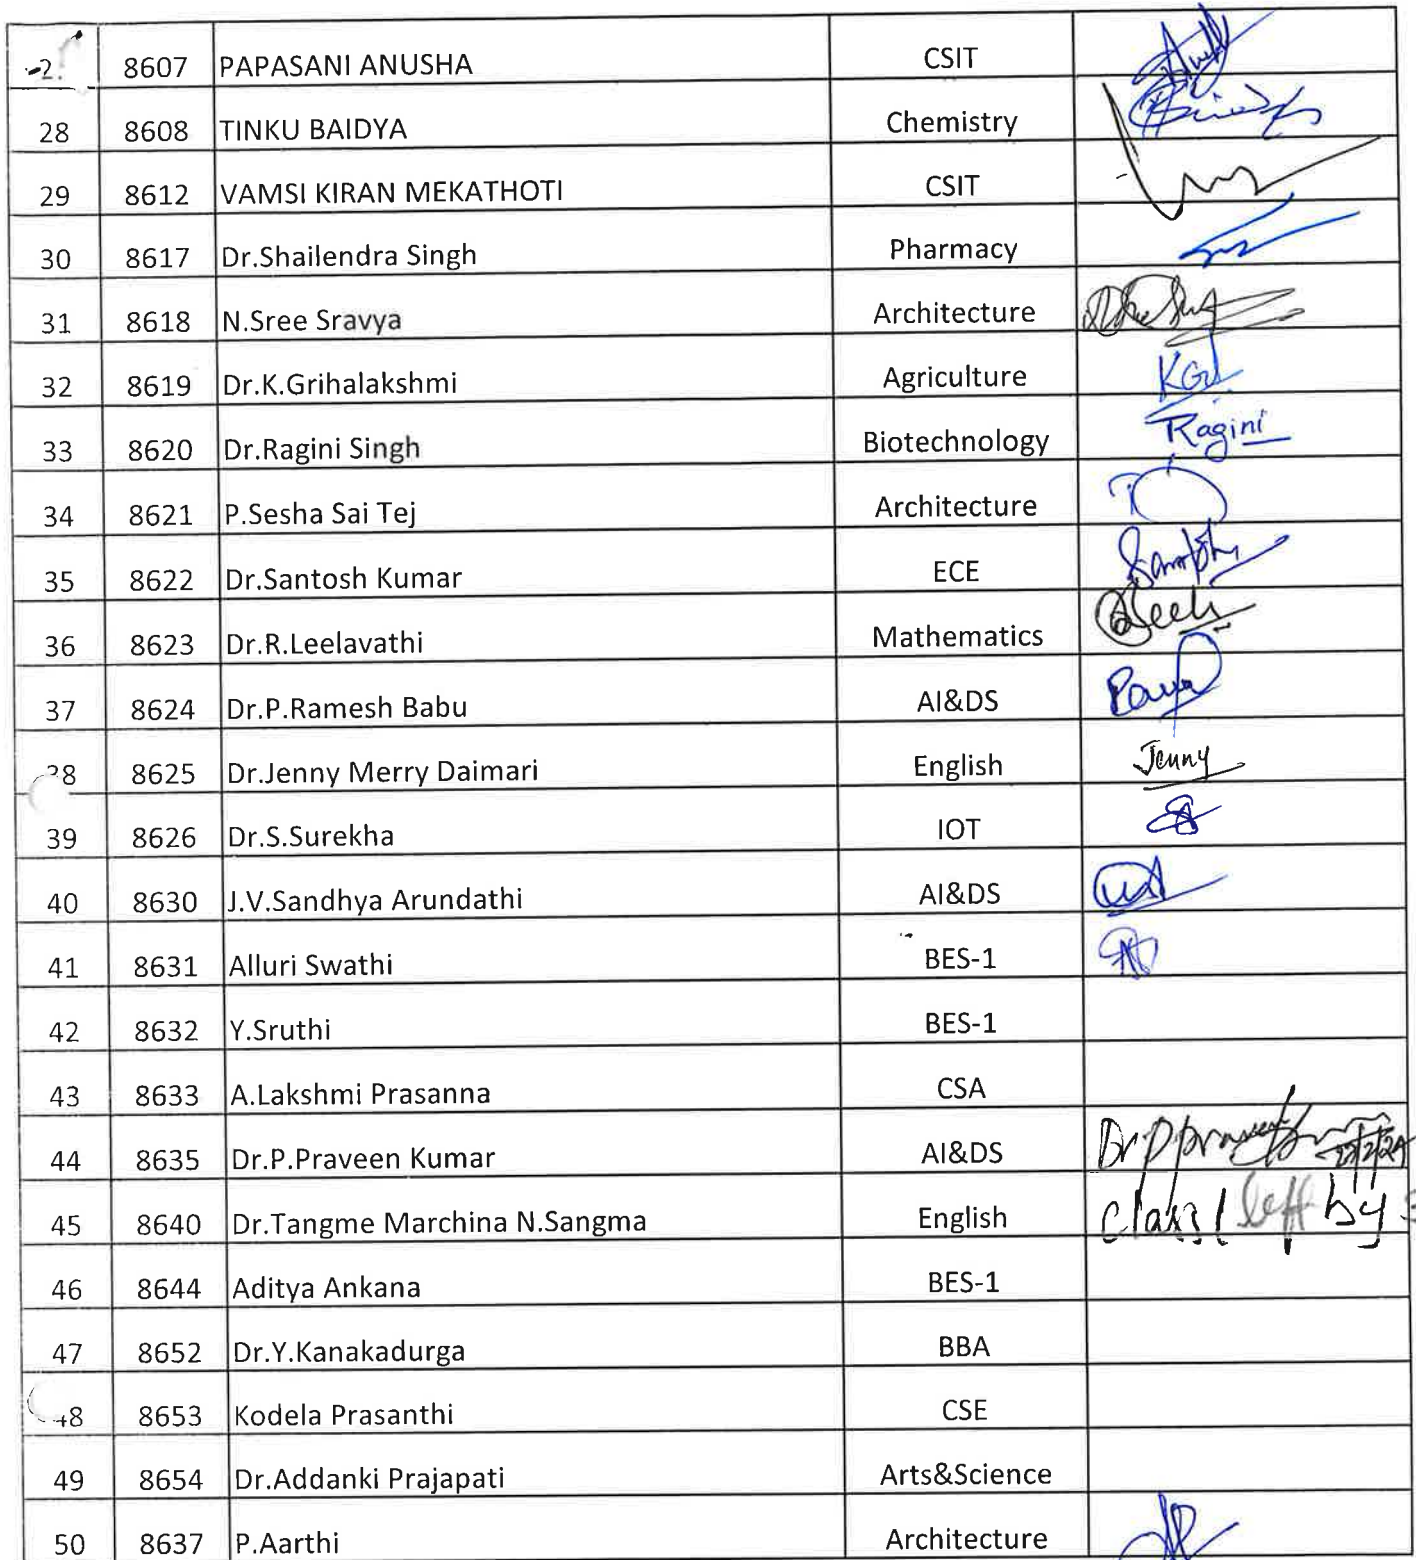 8607 PAPASANI ANUSHA CSIT
28 8608 TINKU BAIDYA Chemistry
29 8612 VAMSI KIRAN MEKATHOTI CSIT
30 8617 Dr.Shailendra Singh Pharmacy
31 8618 N.Sree Sravya Architecture
32 8619 Dr.K.Grihalakshmi Agriculture KGL
33 8620 Dr.Ragini Singh Biotechnology Ragini
34 8621 P.Sesha Sai Tej Architecture
35 8622 Dr.Santosh Kumar ECE
36 8623 Dr.R.Leelavathi Mathematics
37 8624 Dr.P.Ramesh Babu AI&DS
38 8625 Dr.Jenny Merry Daimari English Jenny
39 8626 Dr.S.Surekha IOT
40 8630 J.V.Sandhya Arundathi AI&DS
41 8631 Alluri Swathi BES-1
42 8632 Y.Sruthi BES-1
43 8633 A.Lakshmi Prasanna CSA
44 8635 Dr.P.Praveen Kumar AI&DS
45 8640 Dr.Tangme Marchina N.Sangma English left by
46 8644 Aditya Ankana BES-1
47 8652 Dr.Y.Kanakadurga BBA
48 8653 Kodela Prasanthi CSE
49 8654 Dr.Addanki Prajapati Arts&Science
50 8637 P.Aarthi Architecture